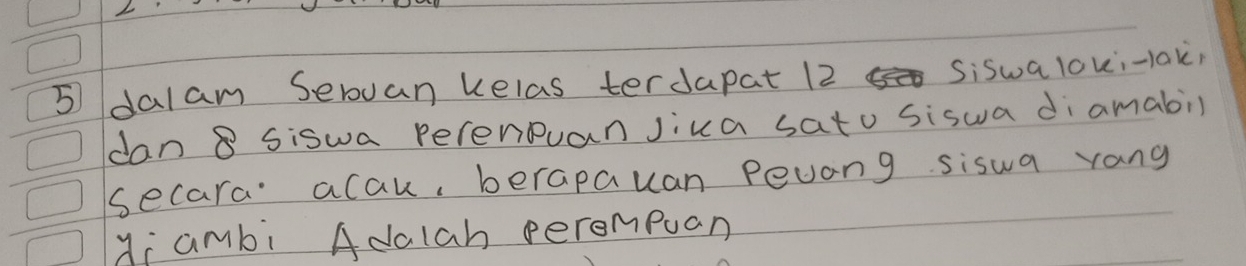 5 dalam Sebuan kelas terdapat 12 siswa laki-laki
dan 8 siswa Perenpuan Jika satu siswa diamabil
secara acak, berapakan Peuang siswa yang
diambi Adalah perempuan